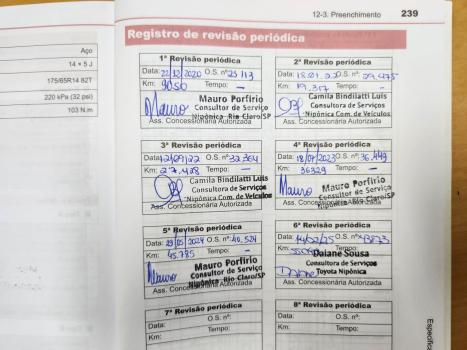 12-3. Preenchimento 239
Aço
14 × 5 J
175/65R14 82T
220 kPa (32 psi)
103 N.m
Registro de revisão periódica
1ª Revisão periódica
Data: 22/12/2020 O.S. nº: 25113
Km: 9056 Tempo: -
Mauro Mauro Porfirio
Consultor de Serviço
Nipônica - Rio Claro/SP
Ass. Concessionária Autorizada
2ª Revisão periódica
Data: O.S. nº: 29.475
Km: 19.317 Tempo: -
Camila Bindilatti Luis
Consultora de Serviços
Nipônica Com. de Veículos
Ass. Concessionária Autorizada
3ª Revisão periódica
Data: 12/09/22 O.S. nº: 32.364
Km: 27.428 Tempo: -
Camila Bindilatti Luis
Consultora de Serviços
Nipônica Com. de Veículos
Ass. Concessionária Autorizada
4ª Revisão periódica
Data: 18/07/2023 O.S. nº: 36.449
Km: 36329 Tempo: -
Mauro Mauro Porfirio
Consultor de Serviço
Nipônica-Rio Claro/SP
Ass. Concessionária Autorizada
5ª Revisão periódica
Data: 29/05/2024 O.S. nº: 40.524
Km: 45.785 Tempo: -
Mauro Mauro Porfirio
Consultor de Serviço
Nipônica - Rio Claro/SP
Ass. Concessionária Autorizada
6ª Revisão periódica
Data: O.S. nº: 43873
Km: Tempo:
Daiane Sousa
Consultora de Serviços
Daiane Toyota Nipônica
Ass. Concessionária Autorizada
7ª Revisão periódica
Data: O.S. nº:
Km: Tempo:
8ª Revisão periódica
Data: O.S. nº:
Km: Tempo: